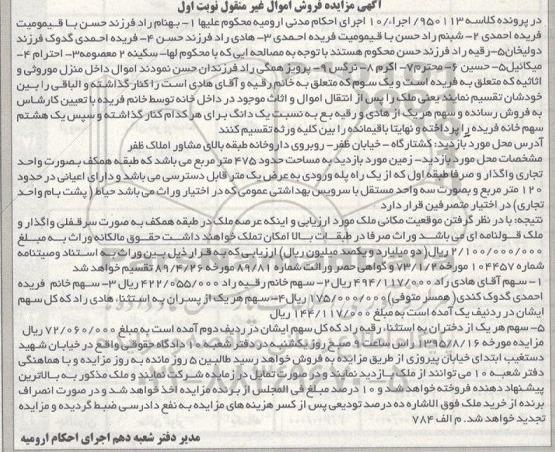 آگهی مزایده فروش اموال غیر منقول نوبت اول
در پرونده کلاسه ۹۵۰۱۱۳/اجرا/۱۰ اجرای احکام مدنی ارومیه محکوم علیها ۱- بهنام راد فرزند حسن با قیمومیت
فریده احمدی ۲- شبنم راد حسن با قیمومیت فریده احمدی ۳- هادی راد فرزند حسن ۴- فریده احمدی گدوک فرزند
دولیخان ۵- رقیه راد فرزند حسن محکوم هستند با توجه به مصالحه ایی که با محکوم لها- سکینه ۲ معصومه ۳- احترام ۴-
میکائیل ۵- حسین ۶- محترم ۷- اکرم ۸- نرگس ۹- پرویز همگی راد فرزندان حسن نمودند اموال داخل منزل موروثی و
اثاثیه که متعلق به فریده است و یک سوم که متعلق به خانم رقیه و آقای هادی است را کنار گذاشته و الباقی را بین
خودشان تقسیم نمایند یعنی ملک را پس از انتقال اموال و اثاث موجود در داخل خانه توسط خانم فریده با تعیین کارشناس
به فروش رسانده و سهم هر یک از هادی و رقیه به نسبت یک دانگ برای هر کدام کنار گذاشته و سپس یک هشتم
سهم خانه فریده را پرداخته و نهایتا باقیمانده را بین کلیه ورثه تقسیم کنند
آدرس محل مورد بازدید: کشتارگاه - خیابان ظفر- روبروی داروخانه طبقه بالای مشاور املاک ظفر
مشخصات محل مورد بازدید- زمین مورد بازدید به مساحت حدود ۴۷۵ متر مربع می باشد که طبقه همکف بصورت واحد
تجاری واگذار و صرفا طبقه اول که از یک راه پله ورودی به عرض یک متر قابل دسترسی می باشد و دارای اعیانی در حدود
۱۲۰ متر مربع و بصورت سه واحد مستقل با سرویس بهداشتی عمومی که در اختیار وراث می باشد حیاط (پشت بام واحد
تجاری) در اختیار متصرفین قرار دارد
نتیجه: با در نظر گرفتن موقعیت مکانی ملک مورد ارزیابی و اینکه عرصه ملک در طبقه همکف به صورت سرقفلی واگذار و
ملک قولنامه ای می باشد وراث صرفا در طبقات بالا امکان تملک خواهند داشت حقوق مالکانه وراث به مبلغ
۲/۱۰۰/۰۰۰/۰۰۰ ریال (دو میلیارد و یکصد میلیون ریال) ارزیابی که به قرار ذیل بین وراث به استناد وصیتنامه
شماره ۱۰۴۴۵۷ مورخه ۷۲/۱/۲ و گواهی حصر وراثت شماره ۸۹/۸۱۰ مورخه ۸۹/۴/۲۶ تقسیم خواهد شد
۱- سهم آقای هادی راد ۴۹۴/۱۱۷/۰۰۰ ریال ۲- سهم خانم رقیه راد ۴۲۲/۰۵۵/۰۰۰ ریال ۳- سهم خانم فریده
احمدی گدوک کندی (همسر متوفی) ۱۷۵/۰۰۰/۰۰۰ ریال ۴- سهم هر یک از پسران به استثنا، هادی راد که کل سهم
ایشان در ردیف یک آمده است به مبلغ ۱۴۴/۱۱۷/۰۰۰ ریال
۵- سهم هر یک از دختران به استثنا، رقیه راد که کل سهم ایشان در ردیف دوم آمده است به مبلغ ۷۲/۰۶۰/۰۰۰ ریال
مزایده مورخه ۱۳۹۵/۸/۱۶ راس ساعت ۱۰ صبح روز یکشنبه در دفتر شعبه ۱۰ دادگاه حقوقی واقع در خیابان شهید
دستغیب ابتدای خیابان پیروزی از طریق مزایده به فروش خواهد رسید طالبین ۵ روز مانده به روز مزایده و با هماهنگی
دفتر شعبه ۱۰ می توانند از ملک بازدید نمایند و در صورت تمایل در زمایده شرکت نمایند و ملک مذکور به بالاترین
پیشنهاد دهنده فروخته خواهد شد و ۱۰ درصد مبلغ فی المجلس از برنده مزایده اخذ خواهد شد و در صورت انصراف
برنده از خرید ملک فوق الاشاره ده درصد تودیعی پس از کسر هزینه های مزایده به نفع دادرسی ضبط گردیده و مزایده
تجدید خواهد شد. م الف ۷۸۴
مدیر دفتر شعبه دهم اجرای احکام ارومیه